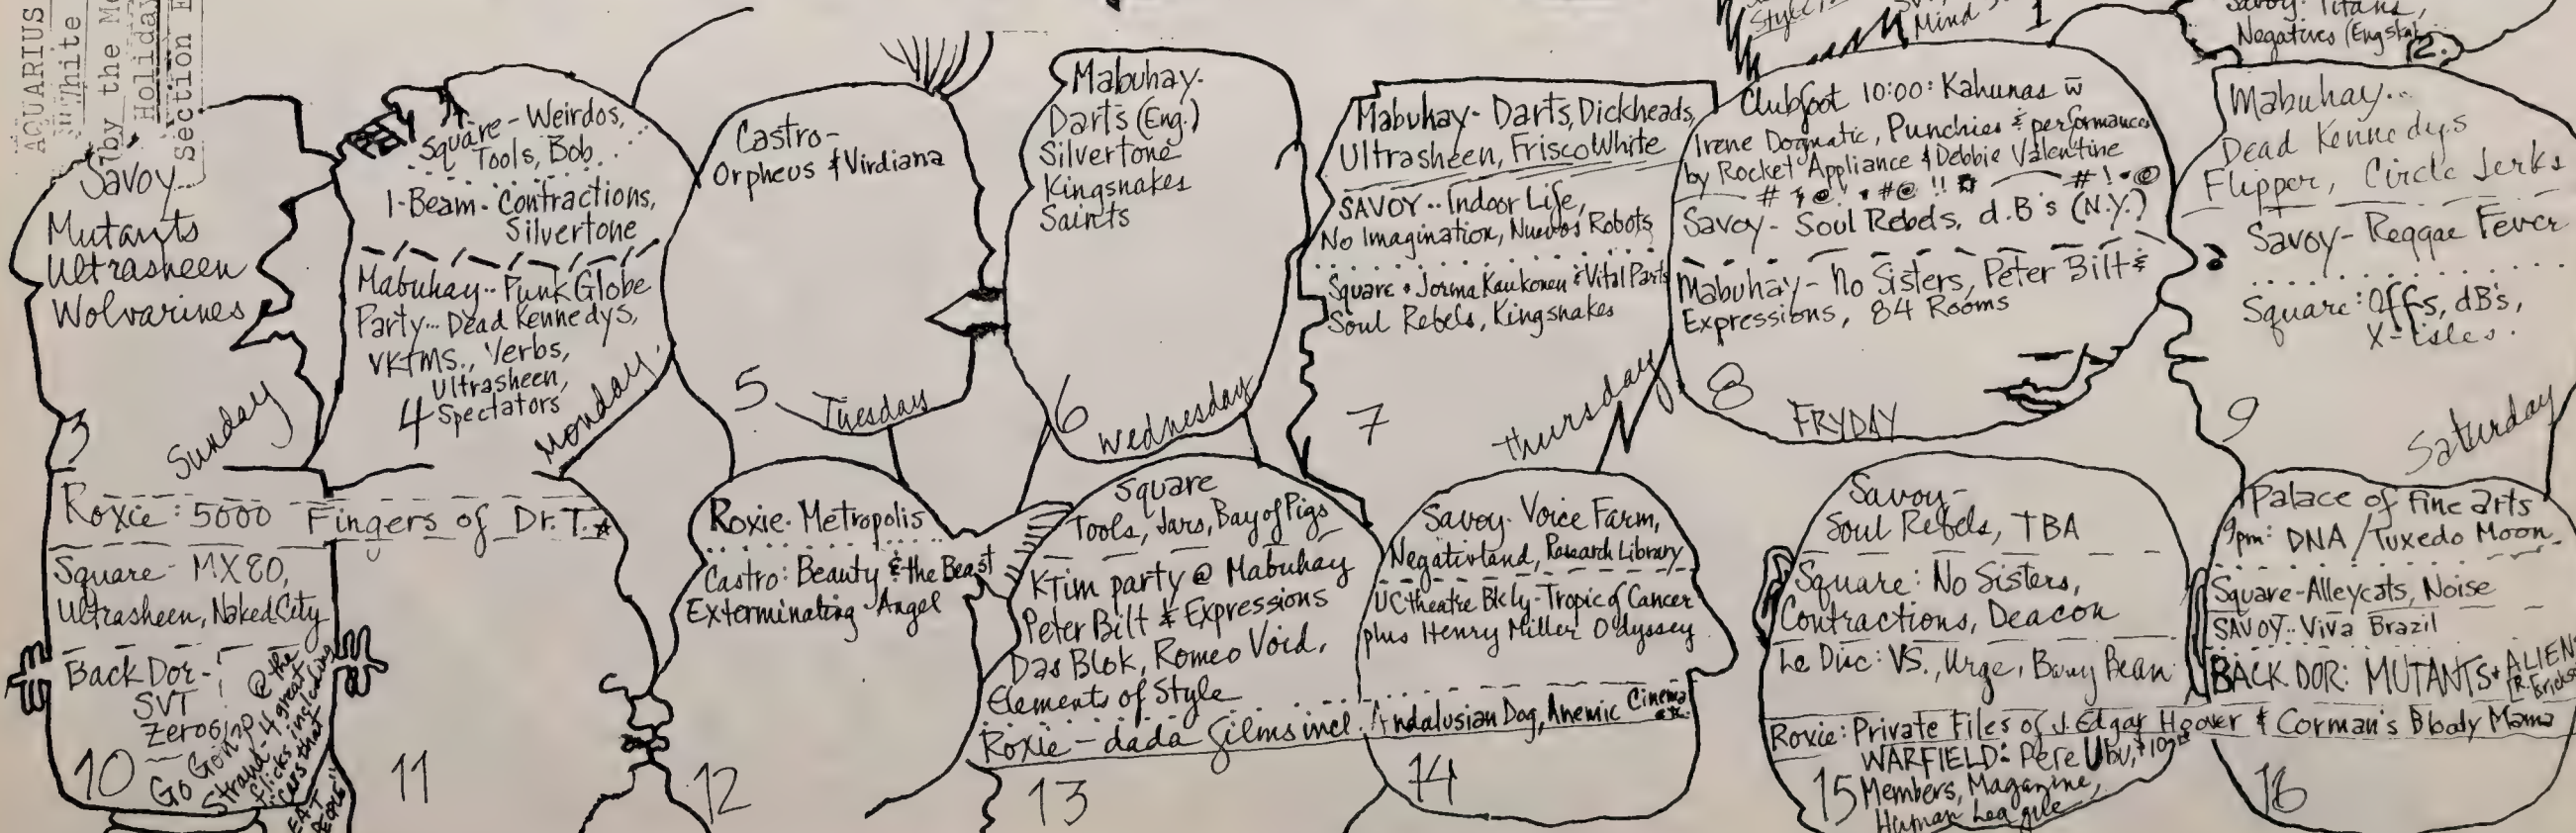 AQUARIUS
White
by the Me
Holiday
Section E
Style,
Mind
1
Savoy- Titans,
Negatives (Eng ska)
2.
Savoy
Mutants
Ultrasheen
Wolvarines
3
Sunday
Square - Weirdos,
Tools, Bob
I-Beam - Contractions,
Silvertone
Mabuhay.. Punk Globe
Party... Dead Kennedys,
VKTMS., Verbs,
Ultrasheen,
Spectators
4
Monday.
Castro-
Orpheus & Virdiana
5
Tuesday
Mabuhay-
Darts (Eng.)
Silvertone
Kingsnakes
Saints
6
Wednesday
Mabuhay- Darts, Dickheads,
Ultrasheen, Frisco White
SAVOY.. Indoor Life,
No Imagination, Nuevos Robots
Square • Jorma Kaukonen & Vital Parts
Soul Rebels, Kingsnakes
7
Thursday
Clubfoot 10:00: Kahunas w̄
Irene Dogmatic, Punchies & performances
by Rocket Appliance & Debbie Valentine
Savoy- Soul Rebels, d.B's (N.Y.)
Mabuhay- No Sisters, Peter Bilt &
Expressions, 84 Rooms
8
FRYDAY
Mabuhay...
Dead Kennedys
Flipper, Circle Jerks
Savoy- Reggae Fever
Square: Offs, dB's,
X-isles.
9
Saturday
Roxie: 5000 Fingers of Dr. T.
Square- MX80,
Ultrasheen, Naked City
Back Dor-
SVT
Zeros
Go Going to @ the
Strand- 4 great
flicks including
"Cars that
EAT
PEOPLE"
10
11
Roxie- Metropolis
Castro: Beauty & the Beast
Exterminating Angel
12
Square
Tools, Jars, Bay of Pigs
KTim party @ Mabuhay
Peter Bilt & Expressions
Das Blok, Romeo Void,
Elements of Style
Roxie - dada films incl. Andalusian Dog, Anemic Cinema etc.
13
Savoy- Voice Farm,
Negativland, Research Library
UC theatre Bkly- Tropic of Cancer
plus Henry Miller Odyssey
14
Savoy-
Soul Rebels, TBA
Square: No Sisters,
Contractions, Deacon
Le Duc: VS., Urge, Bean
Roxie: Private Files of J. Edgar Hoover & Corman's Bloody Mama
WARFIELD: Pere Ubu,
Members, Magazine,
Human League
15
Palace of Fine arts
9pm: DNA / Tuxedo Moon
Square- Alleycats, Noise
SAVOY.. Viva Brazil
BACK DOR: MUTANTS + ALIENS
16